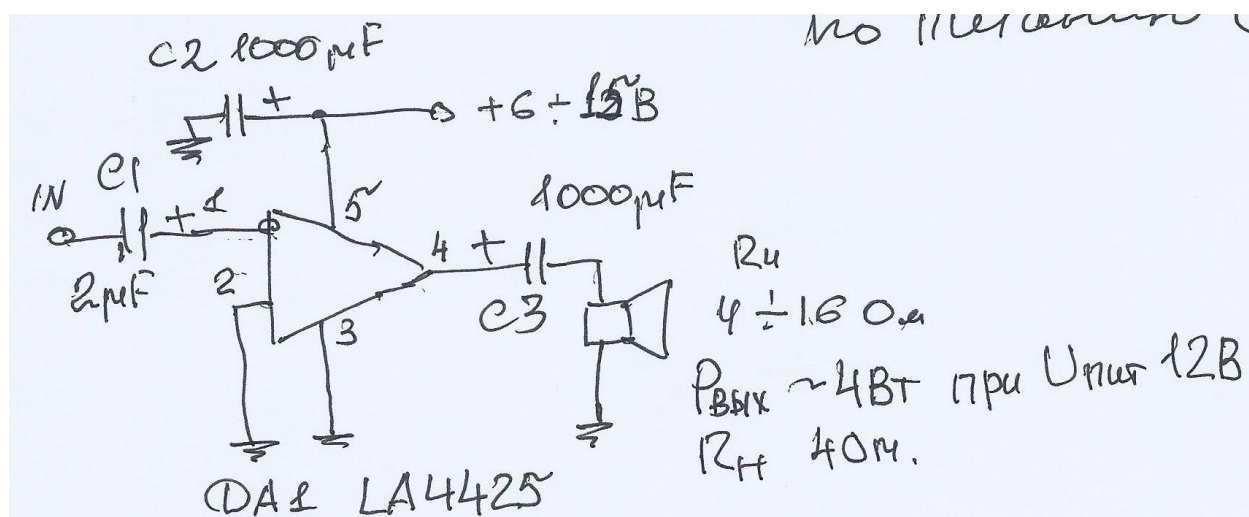 по
C2 1000µF
+
+6 ÷ 15В
IN
C1
+
1
5
1000µF
2µF
2
4
+
3
C3
Rн
4 ÷ 16 Ом
Pвых ~4Вт при Uпит 12В
Rн 4Ом.
DA1 LA4425